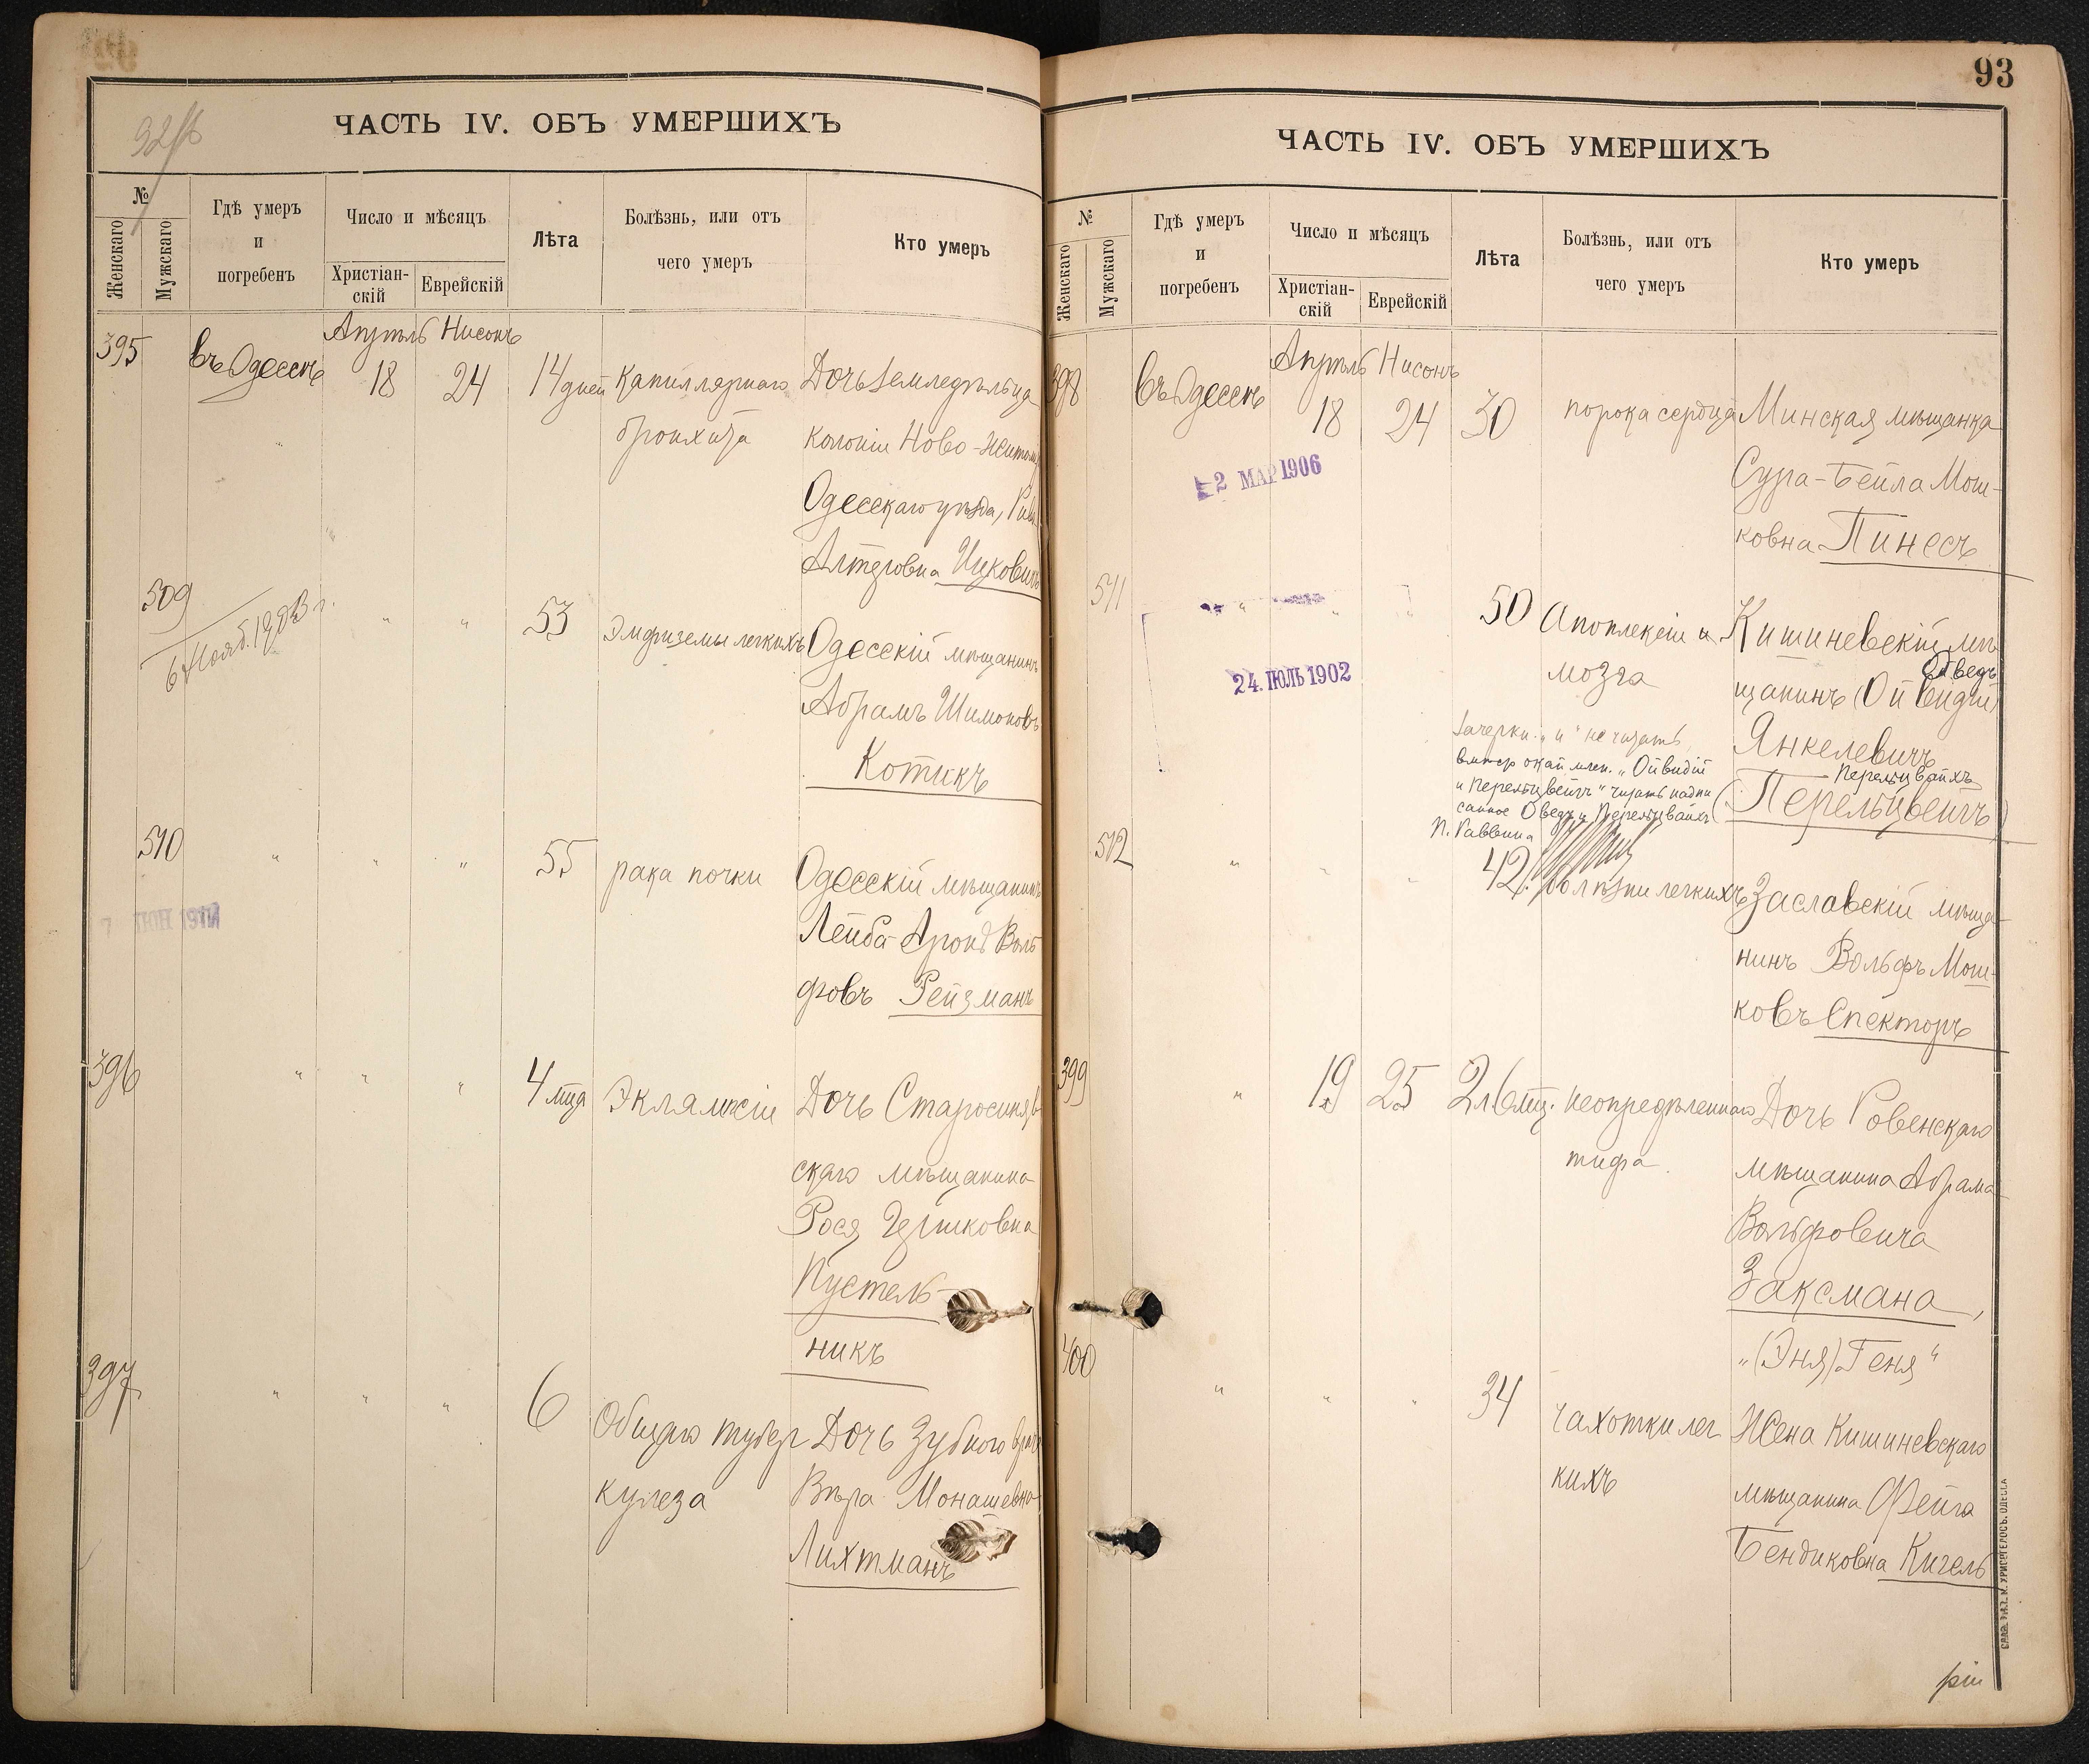 92об
ЧАСТЬ IV. ОБЪ УМЕРШИХЪ
№
Женскаго
Мужскаго
Гдѣ умеръ
и
погребенъ
Число и мѣсяцъ
Христіан-
скій
Еврейскій
Лѣта
Болѣзнь, или отъ
чего умеръ
Кто умеръ
Апрѣль Нисонъ
395 въ Одессѣ 18 24 14 дней Капиллярнаго Дочь Земледѣльца
бронхита колоніи Ново-Житомір
Одесскаго уѣзда, Рива
Алтеровна Ицковичъ
509 " " 53 Эмфиземы легкихъ Одесскій мѣщанинъ
6 Нояб. 1903 г.
Абрамъ Шимоновъ
Котикъ
510 " " " 55 рака почки Одесскій мѣщанинъ
Лейба-Аронъ Воль
фовъ Рейзманъ
396 " " " 4 мца Эклямпсіи Дочь Старосиняв
скаго мѣщанина
Рося Гершковна
Пустель-
никъ
397 " " " 6 Общаго тубер Дочь Зубного врача
кулеза Вѣра Монашевна
Лихтманъ
93
ЧАСТЬ IV. ОБЪ УМЕРШИХЪ
№
Женскаго
Мужскаго
Гдѣ умеръ
и
погребенъ
Число и мѣсяцъ
Христіан-
скій
Еврейскій
Лѣта
Болѣзнь, или отъ
чего умеръ
Кто умеръ
Апрѣль Нисонъ
398 въ Одессѣ 18 24 30 порока сердца Минская мѣщанка
2 МАР 1906
Сура-Бейла Мош-
ковна Пинесъ
511 " " " 50 Апоплексіи и Кишиневскій мѣ
Овведъ
мозга щанинъ (Ойвидій)
24. ІЮЛЬ 1902
Янкелевичъ
Зачеркн. "и" не читать,
вмѣсто "Ойвидій
Перельцвайхъ
и Перельцвейгъ" читать надпи (Перельцвейгъ)
санное Оведъ и Перельцвайхъ
П. Раввина
512 " " " 42 болѣзни легкихъ Заславскій мѣща-
нинъ Вольфъ Мош-
ковъ Спекторъ
399 " 19 25 2 л. 6 мц. неопредѣленнаго Дочь Ровенскаго
тифа. мѣщанина Абрама
Вольфовича
Заксмана,
"(Эня) Геня"
400 " " " 34 чахотки лег Жена Кишиневскаго
кихъ мѣщанина Фейга
Бендиковна Кигель
рiи